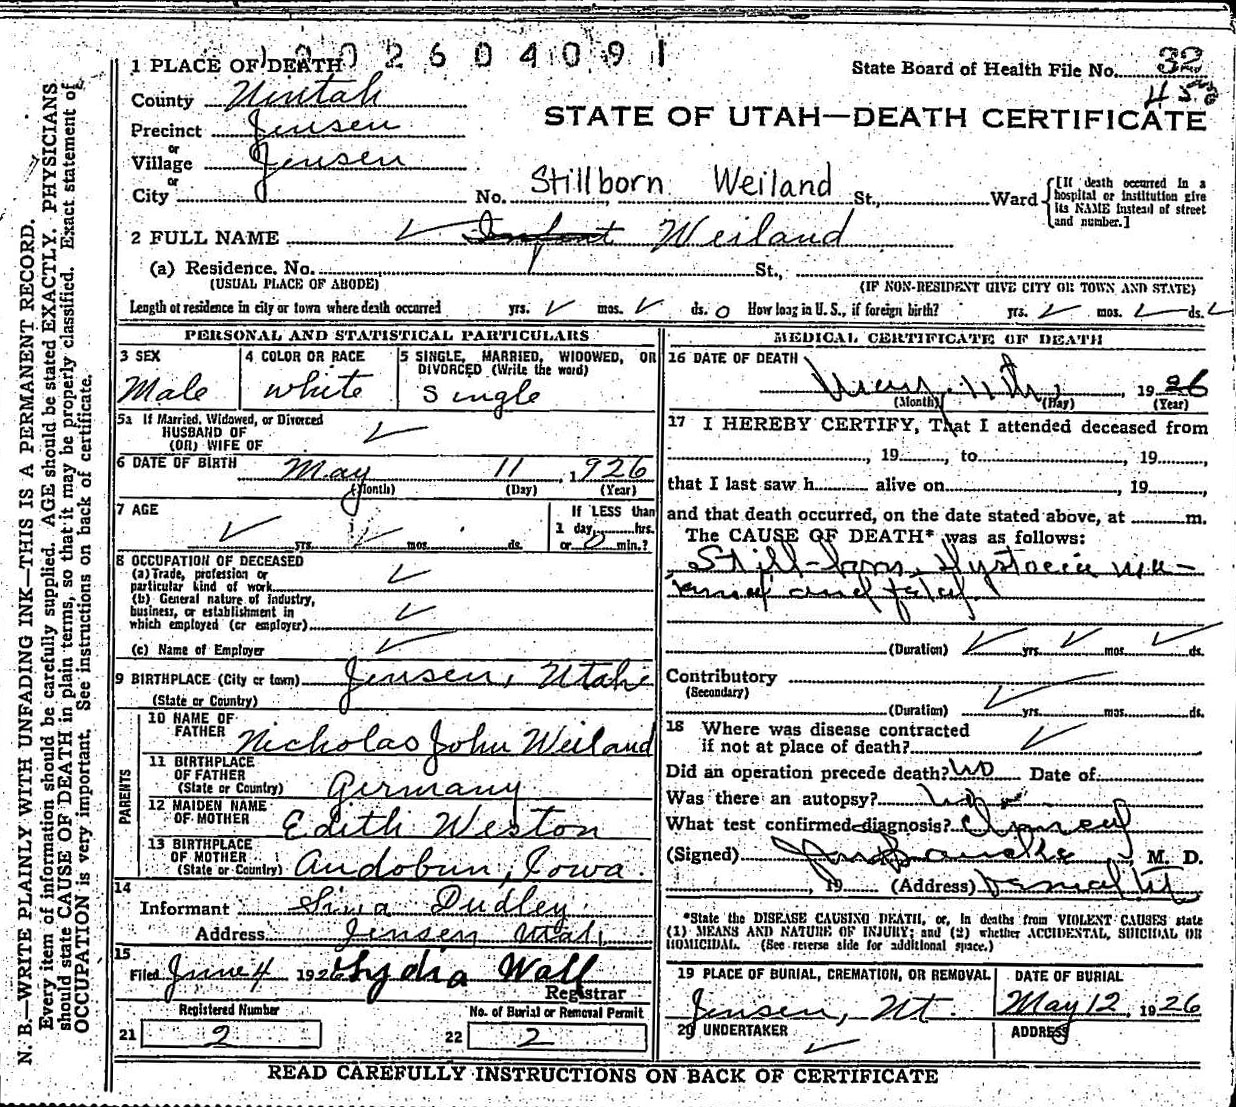 1 PLACE OF DEATH
1002604091
State Board of Health File No. 32
County Uintah
STATE OF UTAH—DEATH CERTIFICATE
Precinct Jensen
or
Village Jensen
or
City
No. Stillborn Weiland St., Ward
[If death occurred in a hospital or institution give its NAME instead of street and number.]
2 FULL NAME Infant Weiland
(a) Residence. No. St.,
(USUAL PLACE OF ABODE)
(IF NON-RESIDENT GIVE CITY OR TOWN AND STATE)
Length of residence in city or town where death occurred yrs. mos. ds. 0 How long in U. S., if foreign birth? yrs. mos. ds.
PERSONAL AND STATISTICAL PARTICULARS
3 SEX
Male
4 COLOR OR RACE
White
5 SINGLE, MARRIED, WIDOWED, OR DIVORCED (Write the word)
Single
5a If Married, Widowed, or Divorced
HUSBAND OF
(OR) WIFE OF
6 DATE OF BIRTH May 11, 1926
(Month) (Day) (Year)
7 AGE
yrs. mos. ds.
If LESS than
1 day, hrs.
or 0 min.?
8 OCCUPATION OF DECEASED
(a) Trade, profession or
particular kind of work
(b) General nature of industry,
business, or establishment in
which employed (or employer)
(c) Name of Employer
9 BIRTHPLACE (City or town) Jensen, Utah
(State or Country)
PARENTS
10 NAME OF FATHER Nicholas John Weiland
11 BIRTHPLACE OF FATHER (State or Country) Germany
12 MAIDEN NAME OF MOTHER Edith Weston
13 BIRTHPLACE OF MOTHER (State or Country) Audobun, Iowa.
14
Informant Dudley
Address Jensen Utah
15
Filed June 4 1926 Lydia Wall
Registrar
Registered Number
21 2
No. of Burial or Removal Permit
22 2
MEDICAL CERTIFICATE OF DEATH
16 DATE OF DEATH
May 11th, 1926
(Month) (Day) (Year)
17 I HEREBY CERTIFY, That I attended deceased from
, 19 , to , 19 ,
that I last saw h alive on , 19 ,
and that death occurred, on the date stated above, at m.
The CAUSE OF DEATH* was as follows:
Still-born, Dystocia ma-
ternal and fetal.
(Duration) yrs. mos. ds.
Contributory
(Secondary)
(Duration) yrs. mos. ds.
18 Where was disease contracted
if not at place of death?
Did an operation precede death? No Date of
Was there an autopsy? No
What test confirmed diagnosis? Clinical
(Signed) , M. D.
, 19 (Address) Vernal Ut
*State the DISEASE CAUSING DEATH, or, in deaths from VIOLENT CAUSES state
(1) MEANS AND NATURE OF INJURY; and (2) whether ACCIDENTAL, SUICIDAL OR
HOMICIDAL. (See reverse side for additional space.)
19 PLACE OF BURIAL, CREMATION, OR REMOVAL
Jensen, Ut.
DATE OF BURIAL
May 12, 1926
20 UNDERTAKER
ADDRESS
READ CAREFULLY INSTRUCTIONS ON BACK OF CERTIFICATE
N. B.—WRITE PLAINLY WITH UNFADING INK—THIS IS A PERMANENT RECORD.
Every item of information should be carefully supplied. AGE should be stated EXACTLY. PHYSICIANS
should state CAUSE OF DEATH in plain terms, so that it may be properly classified. Exact statement of
OCCUPATION is very important. See instructions on back of certificate.